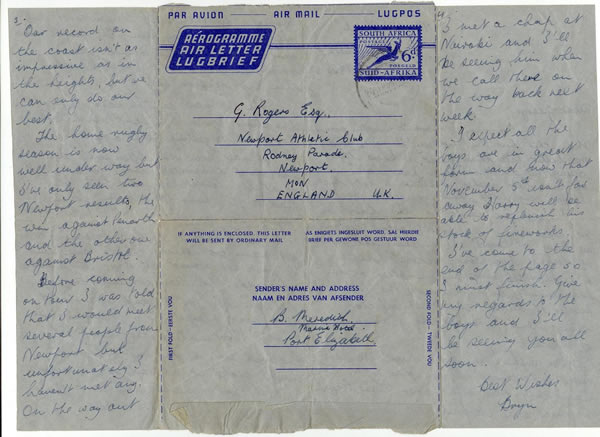 3.
Our record on
the coast isn't as
impressive as in
the heights, but we
can only do our
best.
The home rugby
season is now
well under way but
I've only seen two
Newport results, the
win against Penarth
and the other one
against Bristol.
Before coming
on tour I was told
that I would meet
several people from
Newport but
unfortunately I
haven't met any.
On the way out
PAR AVION AIR MAIL LUGPOS
AEROGRAMME
AIR LETTER
LUGBRIEF
SOUTH AFRICA
6d
POSGELD
SUID-AFRIKA
G. Rogers Esq.,
Newport Athletic Club
Rodney Parade,
Newport,
MON
ENGLAND U.K.
IF ANYTHING IS ENCLOSED, THIS LETTER
WILL BE SENT BY ORDINARY MAIL
AS ENIGIETS INGESLUIT WORD, SAL HIERDIE
BRIEF PER GEWONE POS GESTUUR WORD
SENDER'S NAME AND ADDRESS
NAAM EN ADRES VAN AFSENDER
B. Meredith,
Marine Hotel
Port Elizabeth
FIRST FOLD - EERSTE VOU
SECOND FOLD - TWEEDE VOU
I met a chap at
Nairobi and I'll
be seeing him when
we call there on
the way back next
week.
I expect all the
boys are in great
form and now that
November 5th isn't far
away Darry will be
able to replenish his
stock of fireworks.
I've come to the
end of the page so
I must finish. Give
my regards to the
boys and I'll
be seeing you all
soon.
Best Wishes
Bryn